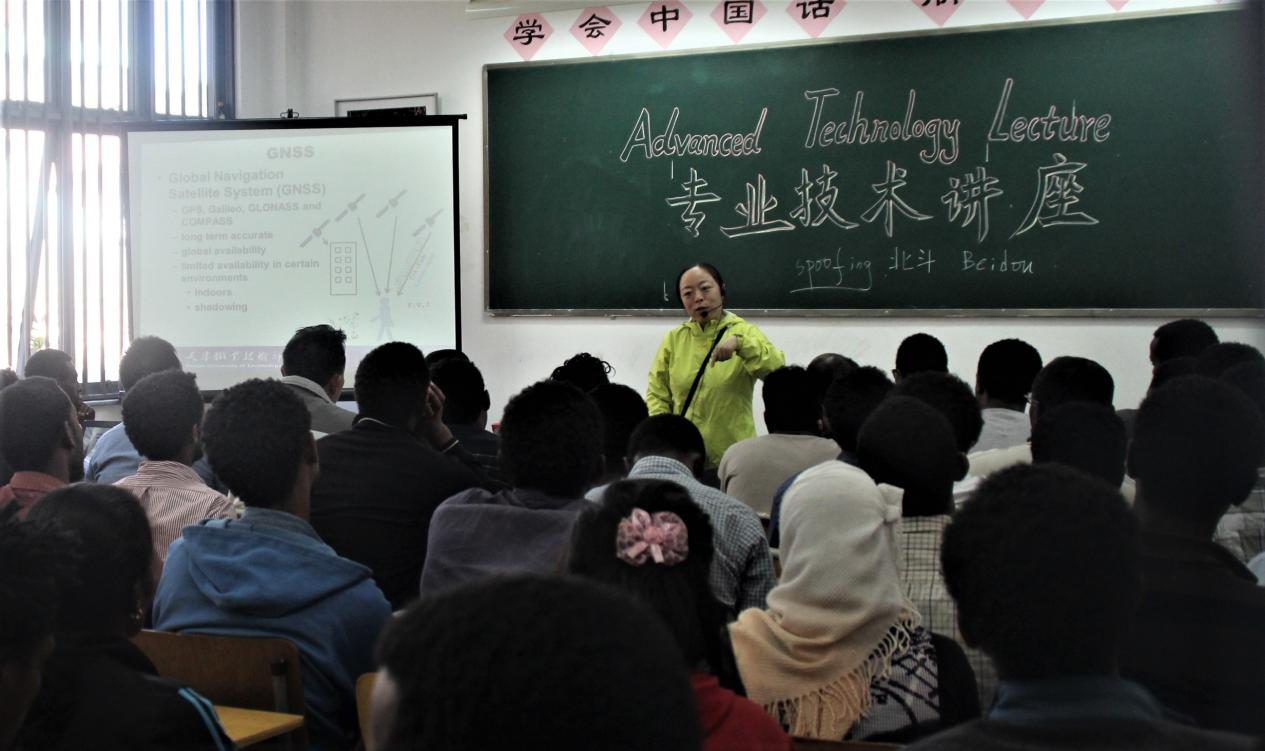 学会中国话
Advanced Technology Lecture
专业技术讲座
spoofing 北斗 Beidou
GNSS
• Global Navigation
Satellite System (GNSS)
– GPS, Galileo, GLONASS and
COMPASS
– long term accurate
– global availability
– limited availability in certain
environments
• indoors
• shadowing